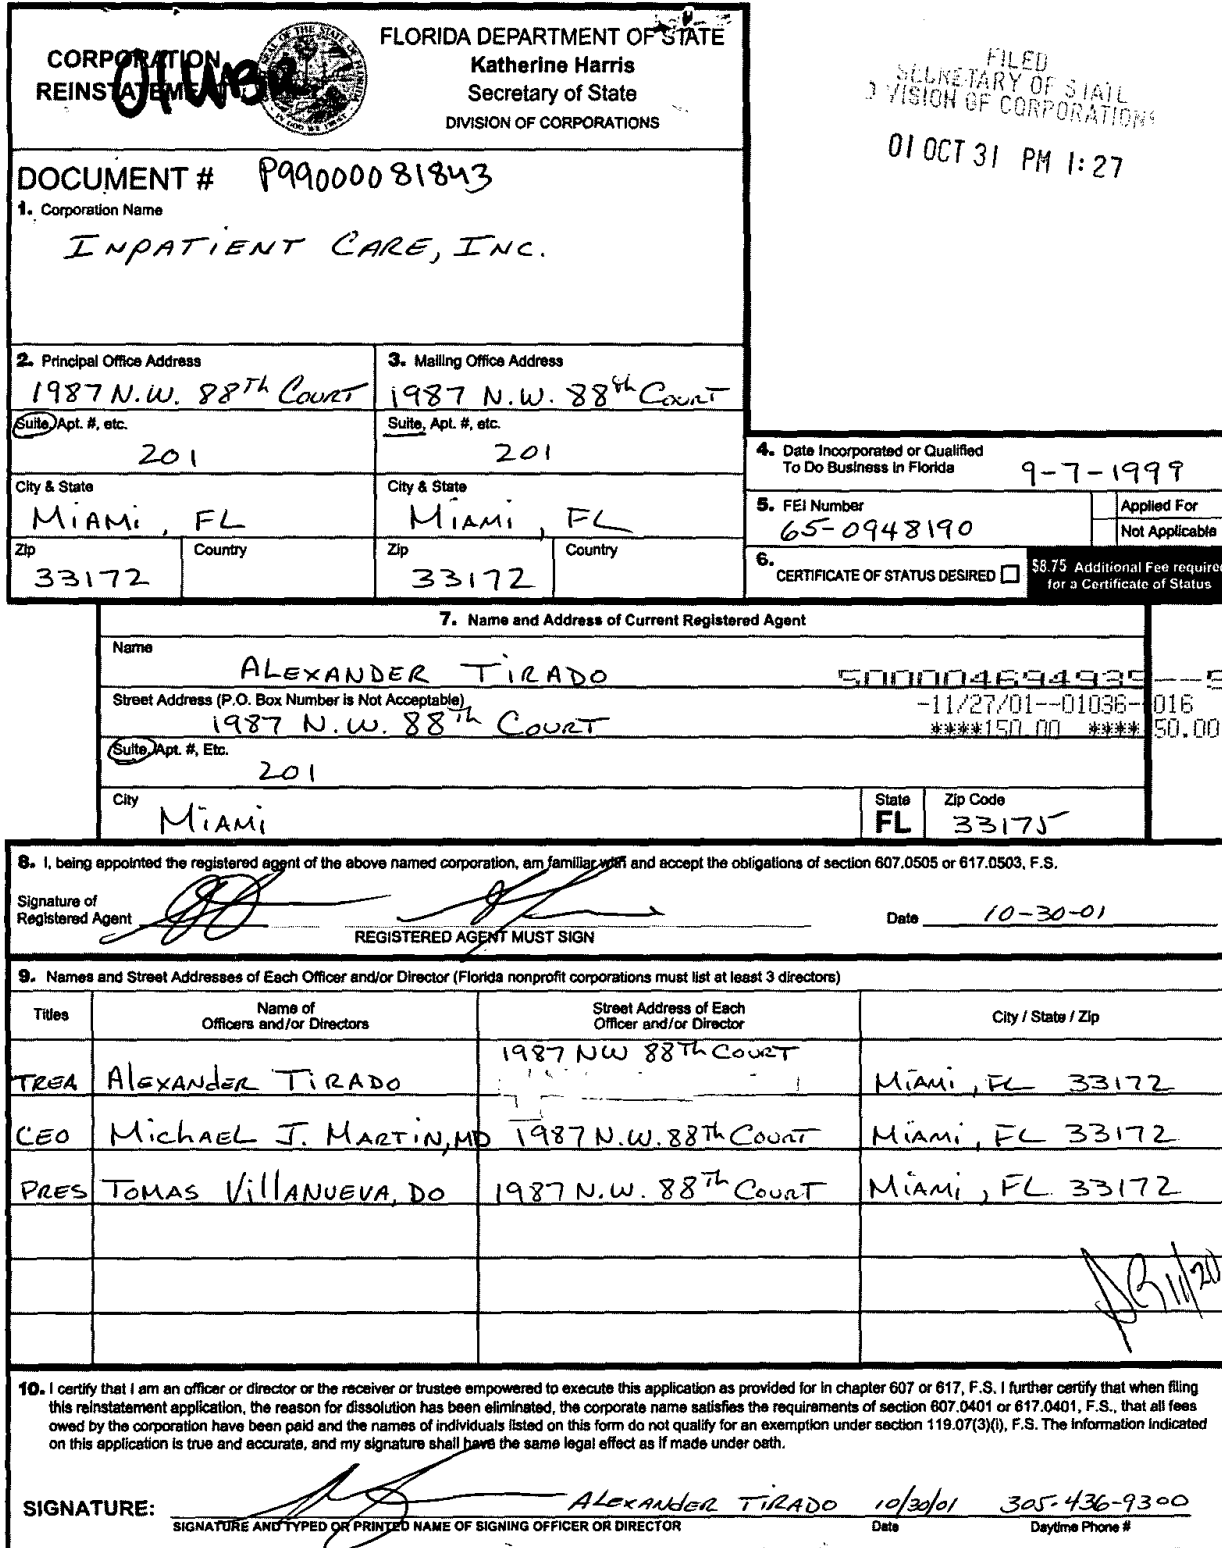 CORPORATION
REINSTATEMENT
01 UBR
FLORIDA DEPARTMENT OF STATE
Katherine Harris
Secretary of State
DIVISION OF CORPORATIONS
FILED
SECRETARY OF STATE
DIVISION OF CORPORATIONS
01 OCT 31 PM 1:27
DOCUMENT # P99000081843
1. Corporation Name
INPATIENT CARE, INC.
2. Principal Office Address
1987 N.W. 88th COURT
Suite, Apt. #, etc.
201
City & State
MIAMI, FL
Zip Country
33172
3. Mailing Office Address
1987 N.W. 88th COURT
Suite, Apt. #, etc.
201
City & State
MIAMI, FL
Zip Country
33172
4. Date Incorporated or Qualified
To Do Business in Florida 9-7-1999
5. FEI Number
65-0948190
Applied For
Not Applicable
6. CERTIFICATE OF STATUS DESIRED
$8.75 Additional Fee required
for a Certificate of Status
7. Name and Address of Current Registered Agent
Name
ALEXANDER TIRADO
500004694935--5
Street Address (P.O. Box Number is Not Acceptable)
-11/27/01--01036--016
1987 N.W. 88th COURT
****150.00 ****150.00
Suite, Apt. #, Etc.
201
City State Zip Code
MIAMI FL 33175
8. I, being appointed the registered agent of the above named corporation, am familiar with and accept the obligations of section 607.0505 or 617.0503, F.S.
Signature of
Registered Agent Date 10-30-01
REGISTERED AGENT MUST SIGN
9. Names and Street Addresses of Each Officer and/or Director (Florida nonprofit corporations must list at least 3 directors)
Titles Name of Officers and/or Directors Street Address of Each Officer and/or Director City / State / Zip
TREA ALEXANDER TIRADO 1987 NW 88th COURT MIAMI, FL 33172
CEO MICHAEL J. MARTIN, MD 1987 N.W. 88th COURT MIAMI, FL 33172
PRES TOMAS VILLANUEVA, DO 1987 N.W. 88th COURT MIAMI, FL 33172
11/20
10. I certify that I am an officer or director or the receiver or trustee empowered to execute this application as provided for in chapter 607 or 617, F.S. I further certify that when filing
this reinstatement application, the reason for dissolution has been eliminated, the corporate name satisfies the requirements of section 607.0401 or 617.0401, F.S., that all fees
owed by the corporation have been paid and the names of individuals listed on this form do not qualify for an exemption under section 119.07(3)(i), F.S. The information indicated
on this application is true and accurate, and my signature shall have the same legal effect as if made under oath.
SIGNATURE: ALEXANDER TIRADO 10/30/01 305-436-9300
SIGNATURE AND TYPED OR PRINTED NAME OF SIGNING OFFICER OR DIRECTOR Date Daytime Phone #